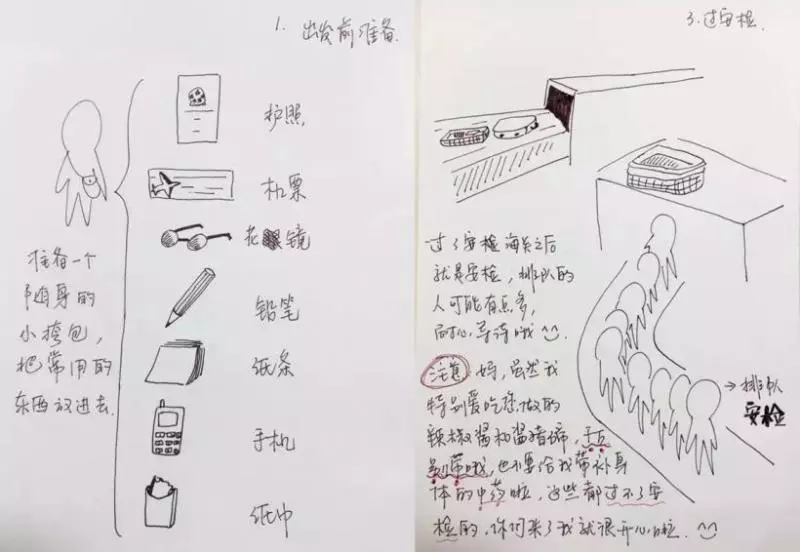 1. 出发前准备.
护照
机票
花眼镜
铅笔
纸条
手机
纸巾
准备一个
随身的
小挎包,
把常用的
东西放进去.
3. 过安检.
过了安检海关之后
就是安检, 排队的
人可能有点多,
耐心等待哦
注意 妈, 虽然我
特别爱吃您做的
辣椒酱和酱猪蹄, 千万
别带哦, 也不要给我带补身
体的中药啦, 这些都过不了安
检的, 你们来了我就很开心啦.
→排队
安检